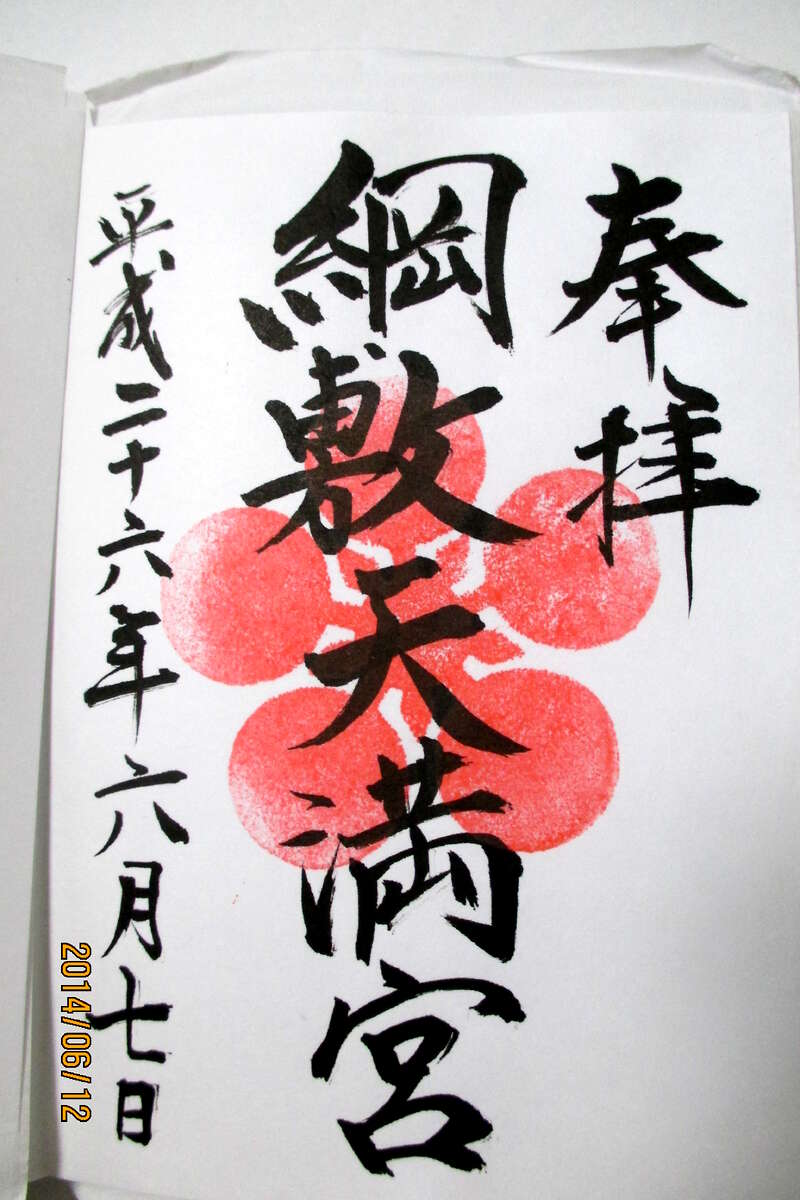 奉拝
綱敷天満宮
平成二十六年六月七日
2014/06/12